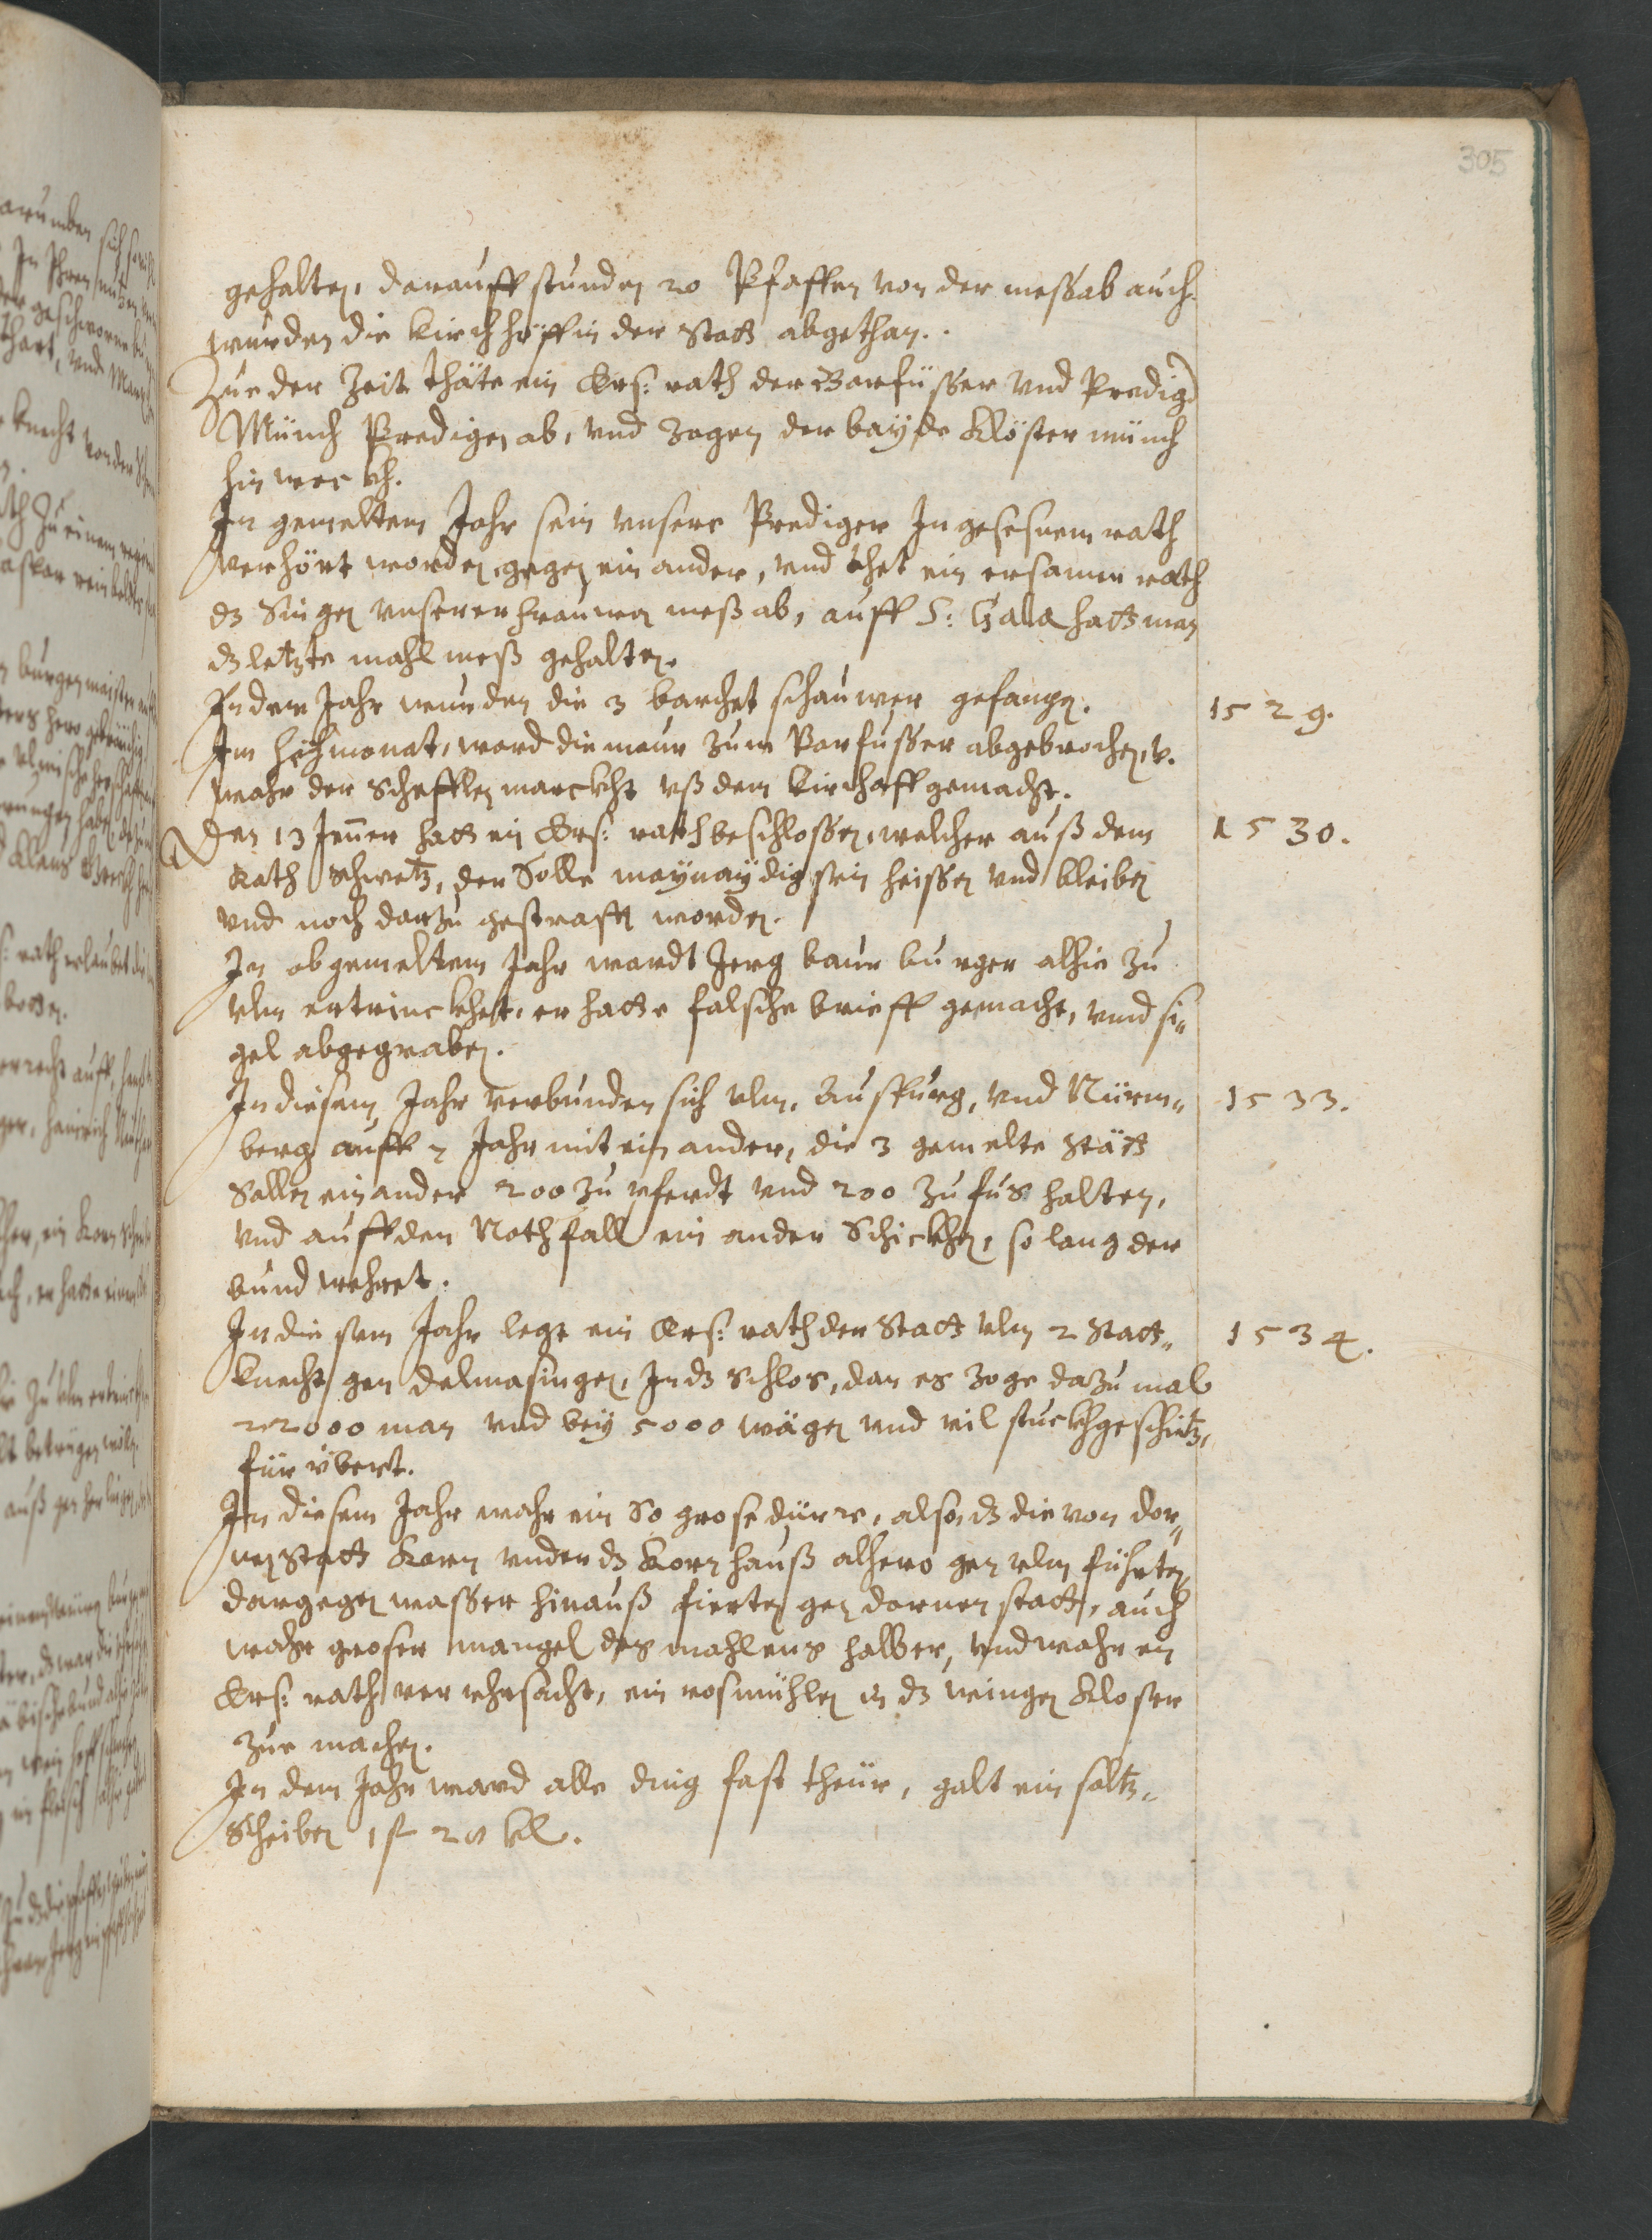 305
gehalten, darauff stunden 20 Pfaffen von der mess ab auch
wurden die Kirchhöff in der Statt abgethan.
Zue der Zeit thäte ein Ers: rath der Barfüsser vnd Predig
Münch Predigen ab, vnd zogen der bayde Klöster münch
hinweckh.
In gemeltem Jahr sein vnsere Prediger In gesesnem rath
verhört worden gegen ein ander, vnd thet ein ersamer rath
dz Singen vnserer frauwen meß ab, auff S: Gala hatt man
dz letzte mahl meß gehalten.
In dem Jahr wurden die 3 barchet schauwer gefangen.
1529.
Im hewmonat, ward die maur zum Barfusser abgebrochen, v.
wahr der Schefflen marckht vß dem Kirchoff gemacht.
Den 13 Jenner hatt ein Ers: rath beschlossen, welcher auß dem
1530.
Rath schwetz, der Solle maynaydig sein heissen vnd bleiben
vnd noch darzu gestrafft worden.
In obgemeltem Jahr wardt Jerg baur burger alhie zu
vlm ertrinckhet, er hatte falsche brieff gemacht, vnd si„
gel abgegraben.
In diesem Jahr verbunden sich vlm, Auspurg, vnd Nürm„
1533.
berg auff 7 Jahr mit ein ander, die 3 gemelte Stätt
Sollen ein ander 200 zu pferdt vnd 200 zu fus halten,
vnd auff den Nothfall ein ander Schickhen, so lang der
bund wehret.
In diesem Jahr legt ein Ers: rath der Statt vlm 2 Statt„
1534.
knecht gen delmasingen, In dz Schlos, dan es zoge dazumal
22000 man vnd bey 5000 wägen vnd vil stuckhgeschitz,
für vbert.
In diesem Jahr wahr ein So grose dürre, also, dz die von dor„
nenstatt Korn vnder dz Kornhauß alhero gen vlm führten,
dargegen wasser hinauß fierten gen dornenstatt, auch
wahr groser mangel des mahlens halber, vnd wahr ein
Ers: rath verrehrsacht, ein rosmühlen in dz wingen Kloster
zue machen.
In dem Jahr ward alle ding fast theür, galt ein saltz„
Scheiben 1 f 20 kl.